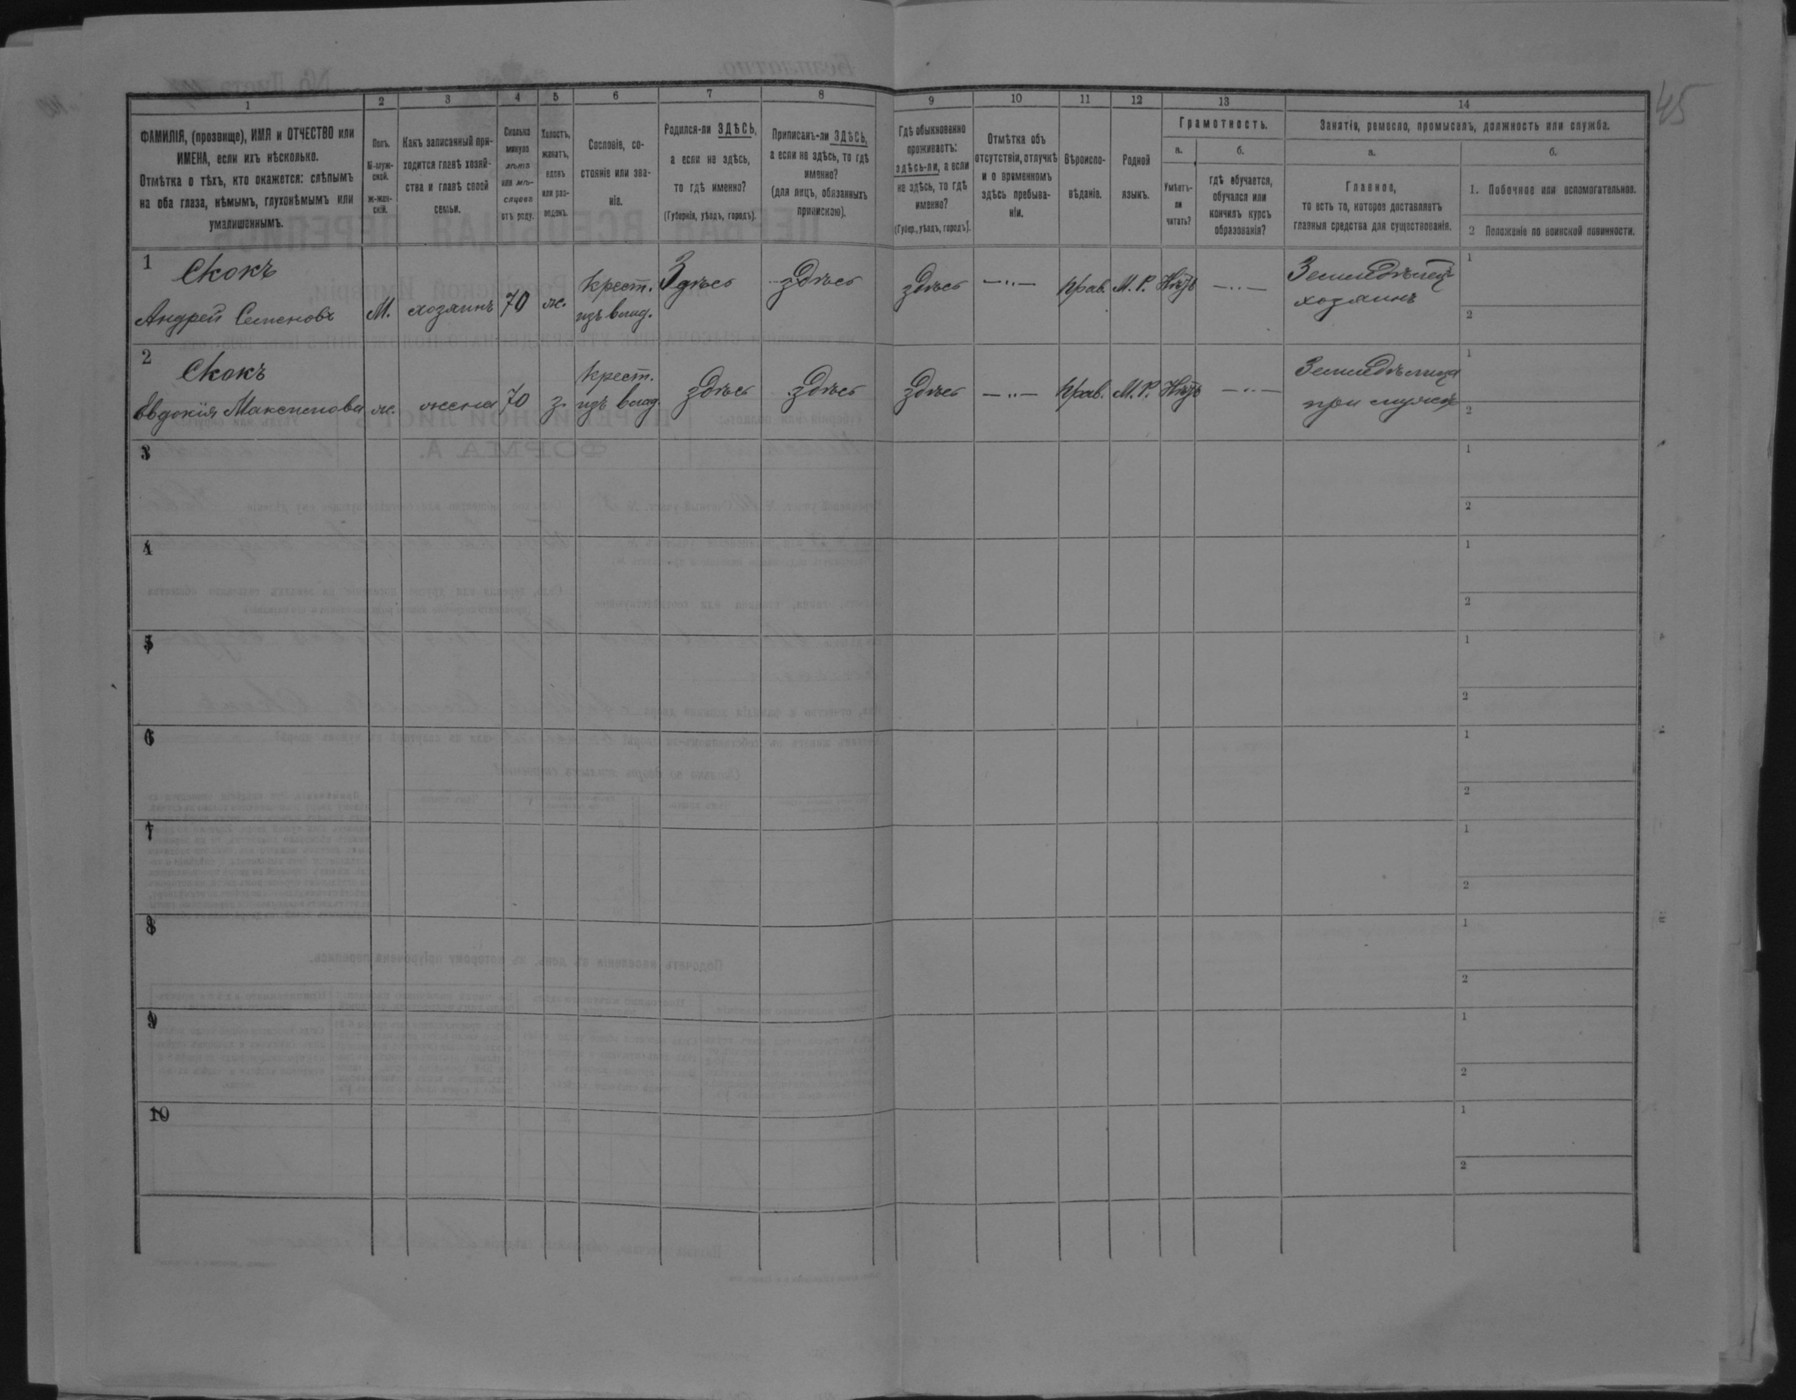 45
1
2
3
4
5
6
7
8
9
10
11
12
13
14
ФАМИЛІЯ, (прозвище), ИМЯ и ОТЧЕСТВО или
ИМЕНА, если ихъ нѣсколько.
Отмѣтка о тѣхъ, кто окажется: слѣпымъ
на оба глаза, нѣмымъ, глухонѣмымъ или
умалишеннымъ.
Полъ.
М-муж-
ской.
ж-жен-
скій.
Какъ записанный при-
ходится главѣ хозяй-
ства и главѣ своей
семьи.
Сколько
минуло
лѣтъ
или мѣ-
сяцевъ
отъ роду.
Холостъ,
женатъ,
вдовъ
или раз-
веденъ.
Сословіе, со-
стояніе или зва-
ніе.
Родился-ли ЗДѢСЬ,
а если не здѣсь,
то гдѣ именно?
(Губернія, уѣздъ, городъ).
Приписанъ-ли ЗДѢСЬ,
а если не здѣсь, то гдѣ
именно?
(для лицъ, обязанныхъ
припискою).
Гдѣ обыкновенно
проживаетъ:
здѣсь-ли, а если
не здѣсь, то гдѣ
именно?
(Губер., уѣздъ, городъ).
Отмѣтка объ
отсутствіи, отлучкѣ
и о временномъ
здѣсь пребыва-
ніи.
Вѣроиспо-
вѣданіе.
Родной
языкъ.
Грамотность.
а.
б.
Умѣетъ-
ли
читать?
гдѣ обучается,
обучался или
кончилъ курсъ
образованія?
Занятіе, ремесло, промыселъ, должность или служба.
а.
б.
Главное,
то есть то, которое доставляетъ
главныя средства для существованія.
1. Побочное или вспомогательное.
2 Положеніе по воинской повинности.
1
Скокъ
Андрей Семеновъ
М.
хозяинъ
70
ж.
Крест.
изъ влад.
Здѣсь
здѣсь
здѣсь
—"—
Прав.
М. Р.
Нѣтъ
—"—
Земледѣлецъ
хозяинъ
1
2
2
Скокъ
Евдокія Максимова
ж.
жена
70
з.
Крест.
изъ влад.
здѣсь
здѣсь
здѣсь
—"—
Прав.
М. Р.
Нѣтъ
—"—
Земледѣлица
при мужѣ
1
2
3
1
2
4
1
2
5
1
2
6
1
2
7
1
2
8
1
2
9
1
2
10
1
2